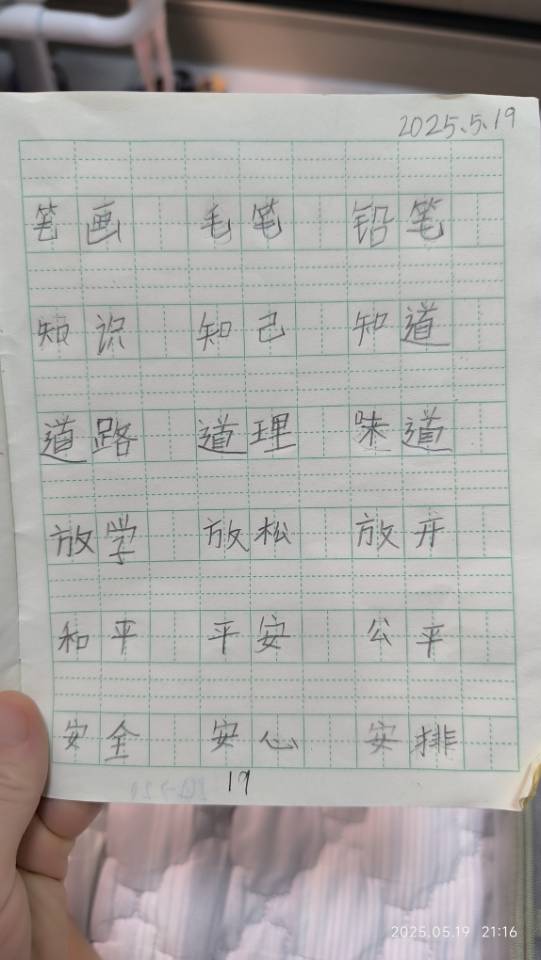 2025.5.19
笔画 毛笔 铅笔
知识 知己 知道
道路 道理 味道
放学 放松 放开
和平 平安 公平
安全 安心 安排
19
2025.05.19 21:16